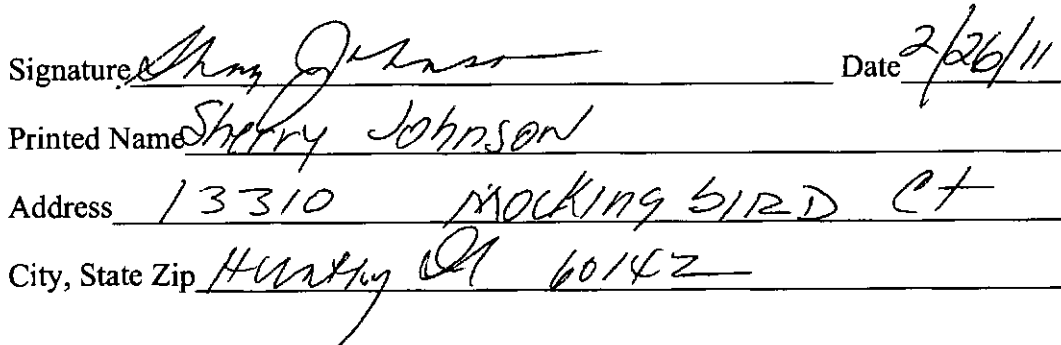 Signature Sherry Johnson Date 2/26/11
Printed Name Sherry Johnson
Address 13310 Mocking BIRD Ct
City, State Zip Huntley Il 60142